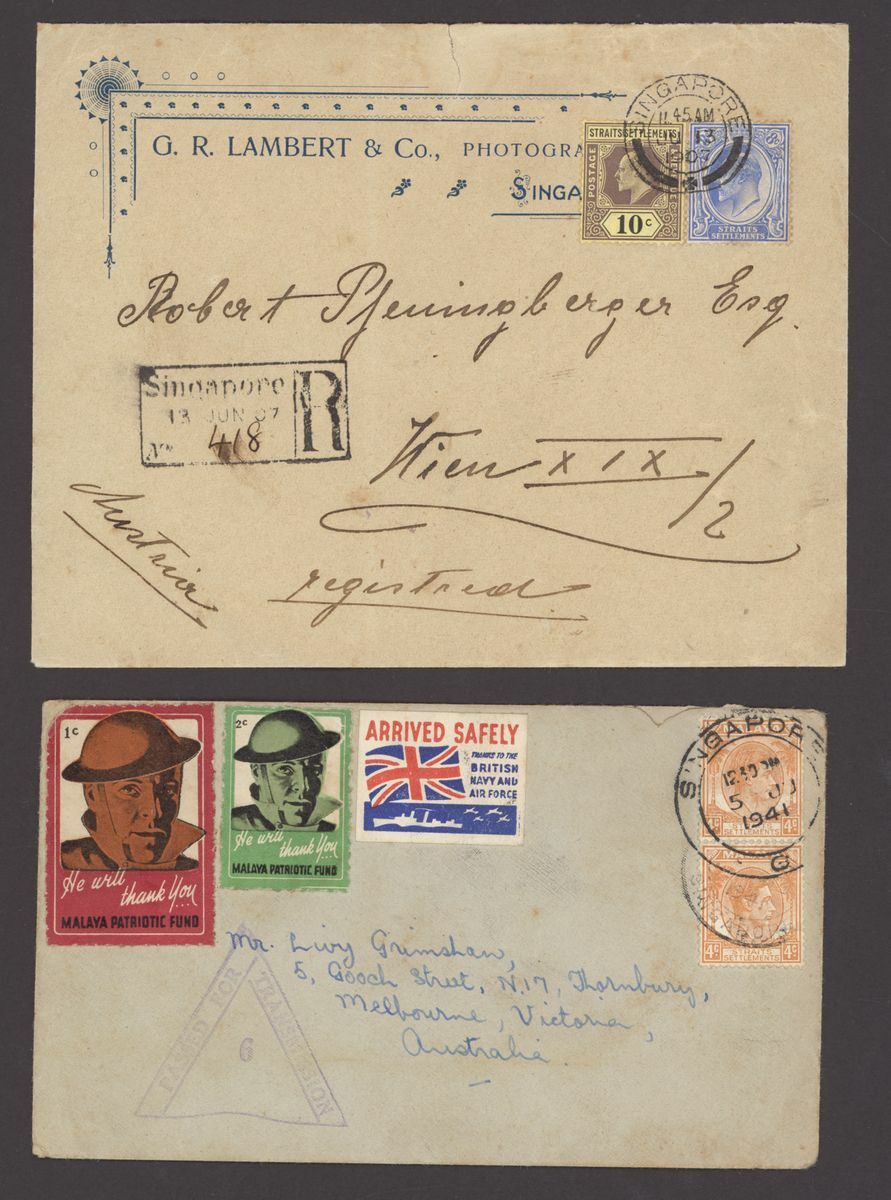 G. R. LAMBERT & Co., PHOTOGRA
SINGA
STRAITS SETTLEMENTS
POSTAGE
10c
8c
STRAITS
SETTLEMENTS
SINGAPORE
11.45 AM
13
1907
Robert Pfeningberger Esq.
Singapore
13 JUN 07
No 418
R
Wien XIX/2
Austria
registred
1c
He will
thank You...
MALAYA PATRIOTIC FUND
2c
He will
thank You...
MALAYA PATRIOTIC FUND
ARRIVED SAFELY
THANKS TO THE
BRITISH
NAVY AND
AIR FORCE
SINGAPORE
12.30 PM
5 JU
1941
G
SETTLEMENTS
4c
4c
STRAITS
SETTLEMENTS
4c
Mr. Livy Grimshaw,
5, Gooch Street, N.17, Thornbury,
Melbourne, Victoria,
Australia
PASSED FOR
TRANSMISSION
6